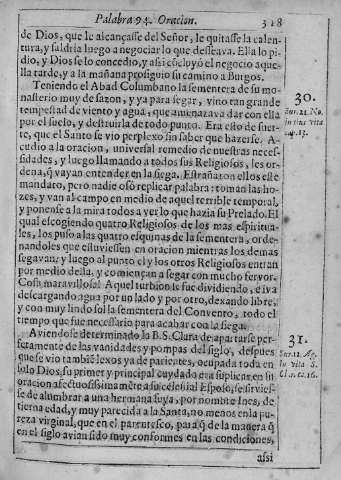 Palabra 94. Oracion. 318
de Dios, que le alcançasse del Señor, le quitasse la calen-
tura, y saldria luego a negociar lo que desseava. El la lo pi-
dio, y Dios se lo concedio, y assi co el negocio aque-
lla tarde, y a la mañana prosiguio su camino a Burgos.
Teniendo el Abad Columbano la sementera de su mo-
nasterio muy de sazon, y ya para segar, vino tan grande
tempestad de viento y agua, que amenazava dar con ella
por el suelo, y destruirla de todo punto. Era esto de suer-
te, que el Santo se vio perplexo sin saber que hazerse. A-
cudio a la oracion, universal remedio de nuestras neces-
sidades, y luego llamando a todos sus Religiosos, les or-
dena, q̃ vayan entender en la siega. Estrañaron ellos este
mandato, pero nadie osò replicar palabra: toman las ho-
zes, y van al campo en medio de aquel terrible temporal,
y ponense a la mira todos a ver lo que hazia su Prelado. El
qual escogiendo quatro Religiosos de los mas espiritua-
les, los puso a las quatro esquinas de la sementera, orde-
nandoles que estuviessen en oracion mientras los demas
segavan; y luego al punto el y los otros Religiosos entran
por medio della, y comiençan a segar con mucho fervor.
Cosa maravillosa! Aquel turbion se fue dividiendo, e iva
descargando agua por un lado y por otro, dexando libre,
y con muy lindo sol la sementera del Convento, todo el
tiempo que fue necessario para acabar con la siega.
Aviendose determinado la B. S. Clara de apartarse per-
fetamente de las vanidades y pompas del siglo, despues
que se vio tambiẽ lexos ya de parientes, ocupada toda en
solo Dios, su primer y principal cuydado era suplicar en su
oracion afectuosissimamẽte a su celestial Esposo, se sirvies-
se de alumbrar a una hermana suya, por nombre Ines, de
tierna edad, y muy parecida a la Santa, no menos en la pu-
reza virginal, que en el parentesco, para q̃ de la manera q̃
en el siglo avian sido muy conformes en las condiciones,
assi
30.
Sur. 21. No.
in eius vita
cap. 13.
31.
Sur. 12. Ag.
in vita S.
Cla. c. 16.